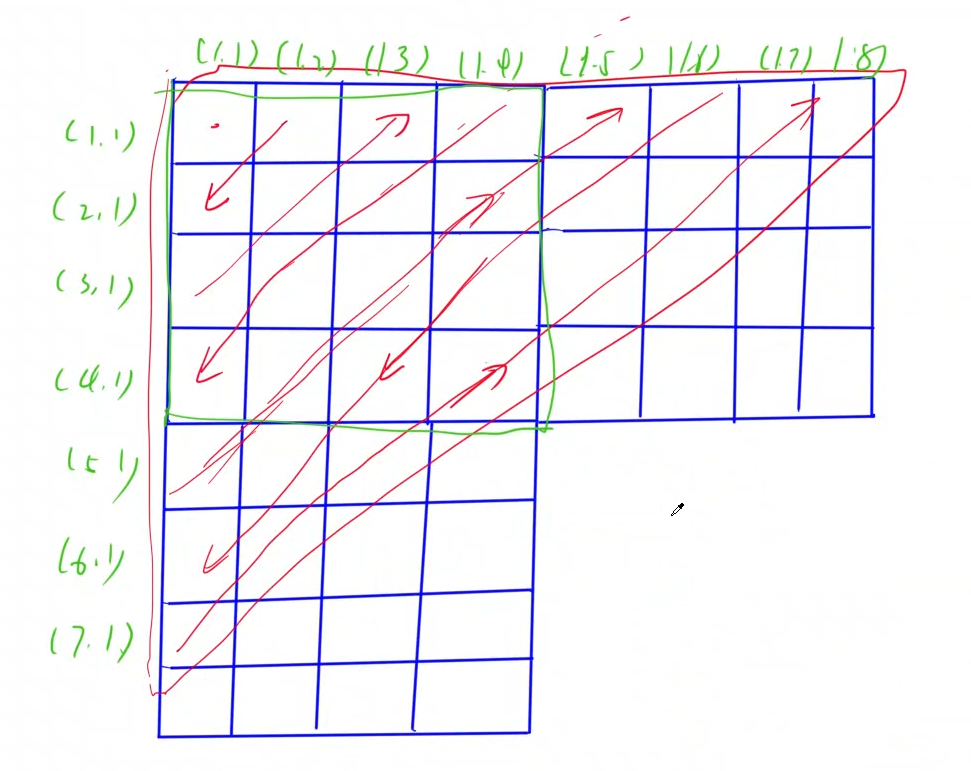 (1.1) (1.2) (1 3) (1.4) (1.5) 1.6) (1.7) 1.8)
(1,1)
(2,1)
(3,1)
(4.1)
(5 1)
(6.1)
(7.1)